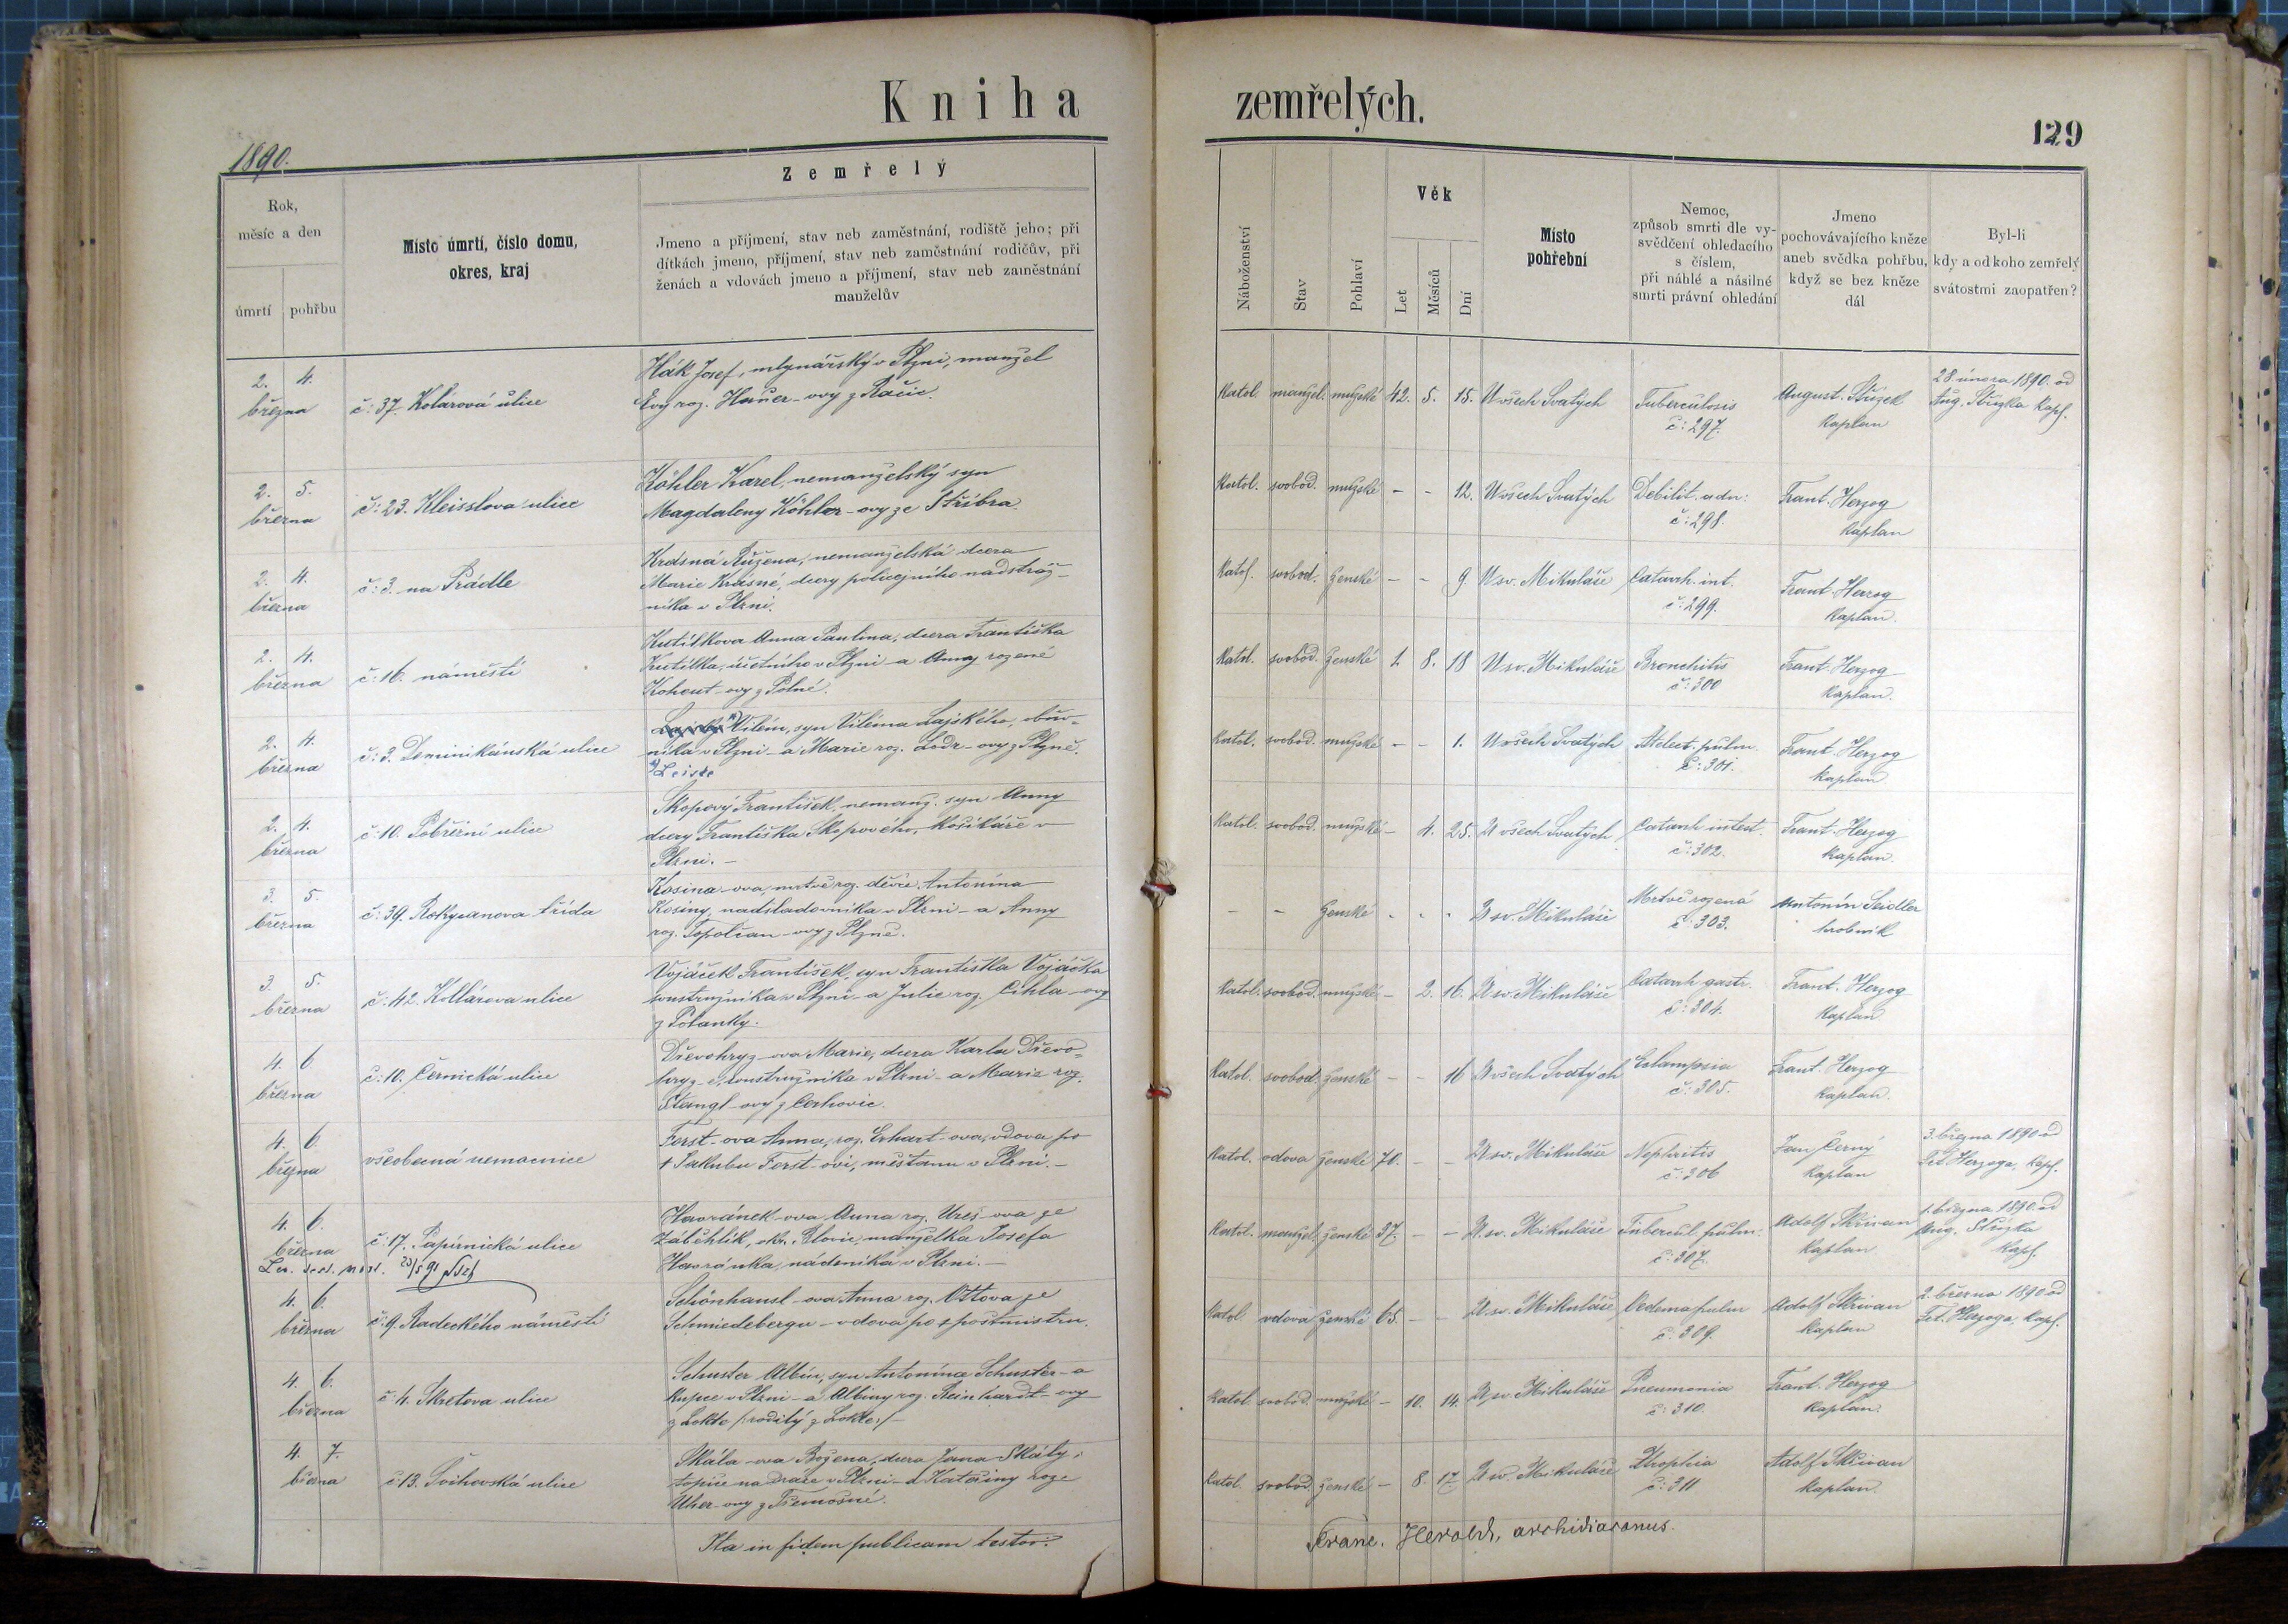 Kniha
zemřelých.
129
1890.
Rok,
měsíc a den
úmrtí
pohřbu
Místo úmrtí, číslo domu,
okres, kraj
Zemřelý
Jmeno a příjmení, stav neb zaměstnání, rodiště jeho; při
dítkách jmeno, příjmení, stav neb zaměstnání rodičův, při
ženách a vdovách jmeno a příjmení, stav neb zaměstnání
manželův
Náboženství
Stav
Pohlaví
Věk
Let
Měsíců
Dní
Místo
pohřební
Nemoc,
způsob smrti dle vy-
svědčení ohledacího
s číslem,
při náhlé a násilné
smrti právní ohledání
Jmeno
pochovávajícího kněze
aneb svědka pohřbu,
když se bez kněze
dál
Byl-li
kdy a od koho zemřelý
svátostmi zaopatřen?
2. 4.
března
č: 37. Kolárová ulice
Hák Josef, mlynářský v Plzni, manžel
Evy roz. Hauer-ovy z Račic.
Katol. manžel. mužské 42. 5. 15. U všech Svatých
Tuberculosis
č: 297.
August. Stuzek
kaplan
28. února 1890. od
Aug. Stuzka kapl.
2. 5.
března
č: 23. Kleisslova ulice
Köhler Karel, nemanželský syn
Magdaleny Köhler-ovy ze Stříbra.
Katol. svobod. mužské - - 12. U všech Svatých
Debilit. adn:
č: 298.
Frant. Herzog
kaplan
2. 4.
března
č: 3. na Prádle
Krásná Růžena, nemanželská dcera
Marie Krásné, dcery policejního nadstráž-
níka v Plzni.
Katol. svobod. ženské - - 9. U sv. Mikuláše
Catarrh. int.
č: 299.
Frant. Herzog
kaplan.
2. 4.
března
č: 16. náměstí
Kutílkova Anna Paulina, dcera Františka
Kutílka, účetního v Plzni - a Anny rozené
Kohout-ovy z Polné.
Katol. svobod. ženské 1. 8. 18 U sv. Mikuláše
Bronchitis
č: 300
Frant. Herzog
kaplan.
2. 4.
března
č: 3. Dominikánská ulice
Vilém, syn Viléma Lajského, obuv-
níka v Plzni - a Marie roz. Lodr-ovy z Plzně.
Katol. svobod. mužské - - 1. U všech Svatých
Atelect. pulm.
č: 301.
Frant. Herzog
kaplan
2. 4.
března
č: 10. Pobřežní ulice
Skopový František, nemanž. syn Anny
dcery Františka Skopového, košíkáře v
Plzni. -
Katol. svobod. mužské - 4. 25. U všech Svatých
Catarrh intest.
č: 302.
Frant. Herzog
kaplan.
3. 5.
března
č: 39. Rokycanova třída
Kosina-ova, mrtvě roz. děvče Antonína
Kosiny, nadsladovníka v Plzni - a Anny
roz. Topolčan-ovy z Plzně.
- - ženské - - - U sv. Mikuláše
Mrtvě rozená
č: 303.
Antonín Seidler
hrobník
3. 5.
března
č: 42. Kollárova ulice
Vojáček František, syn Františka Vojáčka
soustružníka v Plzni - a Julie roz. Cihla-ovy
z Polanky.
Katol. svobod. mužské - 2. 16. U sv. Mikuláše
Catarrh gastr.
č: 304.
Frant. Herzog
kaplan
4. 6.
března
č: 10. Černická ulice
Dřevohryz-ova Marie, dcera Karla Dřevo-
hryz-a, soustružníka v Plzni - a Marie roz.
Stangl-ovy z Cerhovic.
Katol. svobod. ženské - - 16 U všech Svatých
Eclampsia
č: 305.
Frant. Herzog
kaplan.
4. 6.
března
všeobecná nemocnice
Forst-ova Anna, roz. Erhart-ova, vdova po
† Jakubu Forst-ovi, měšťanu v Plzni. -
Katol. vdova ženské 70. - - U sv. Mikuláše
Nephritis
č: 306
Jan Černý
kaplan
3. března 1890 od
Frt. Herzoga, kapl.
4. 6.
března
č: 17. Papírnická ulice
Havránek-ova Anna roz. Ureš-ova ze
Zálěhlík, okr. Blovic, manželka Josefa
Havránka, nádeníka v Plzni. -
Katol. manžel. ženské 37. - - U sv. Mikuláše
Tubercul pulm.
č: 307.
Adolf Skřivan
kaplan
1. března 1890. od
Aug. Stuzka
kapl.
4. 6.
března
č: 9. Radeckého náměstí
Schönhansl-ova Anna roz. Ottova ze
Schmiedebergu - vdova po † postmistru.
Katol. vdova ženské 65. - - U sv. Mikuláše
Oedema pulm
č: 309.
Adolf Skřivan
kaplan
2. března 1890. od
Frt. Herzoga, kapl.
4. 6.
března
č 4. Skretova ulice
Schuster Albín, syn Antonína Schuster-a
kupce v Plzni - a Albiny roz. Reinhardt-ovy
z Lokte /rodilý z Lokte:/-
Katol. svobod. mužské - 10. 14. U sv. Mikuláše
Pneumonia
č: 310.
Frant. Herzog
kaplan.
4. 7.
března
č 13. Švihovská ulice
Skála-ova Božena, dcera Jana Skály,
topiče na dráze v Plzni - a Kateřiny roze
Uher-ovy z Třemošné.
Katol. svobod. ženské - 8. 17. U sv. Mikuláše
Atrophia
č: 311
Adolf Skřivan
kaplan
Ita in fidem publicam testor:
Franc. Herold, archidiaconus.